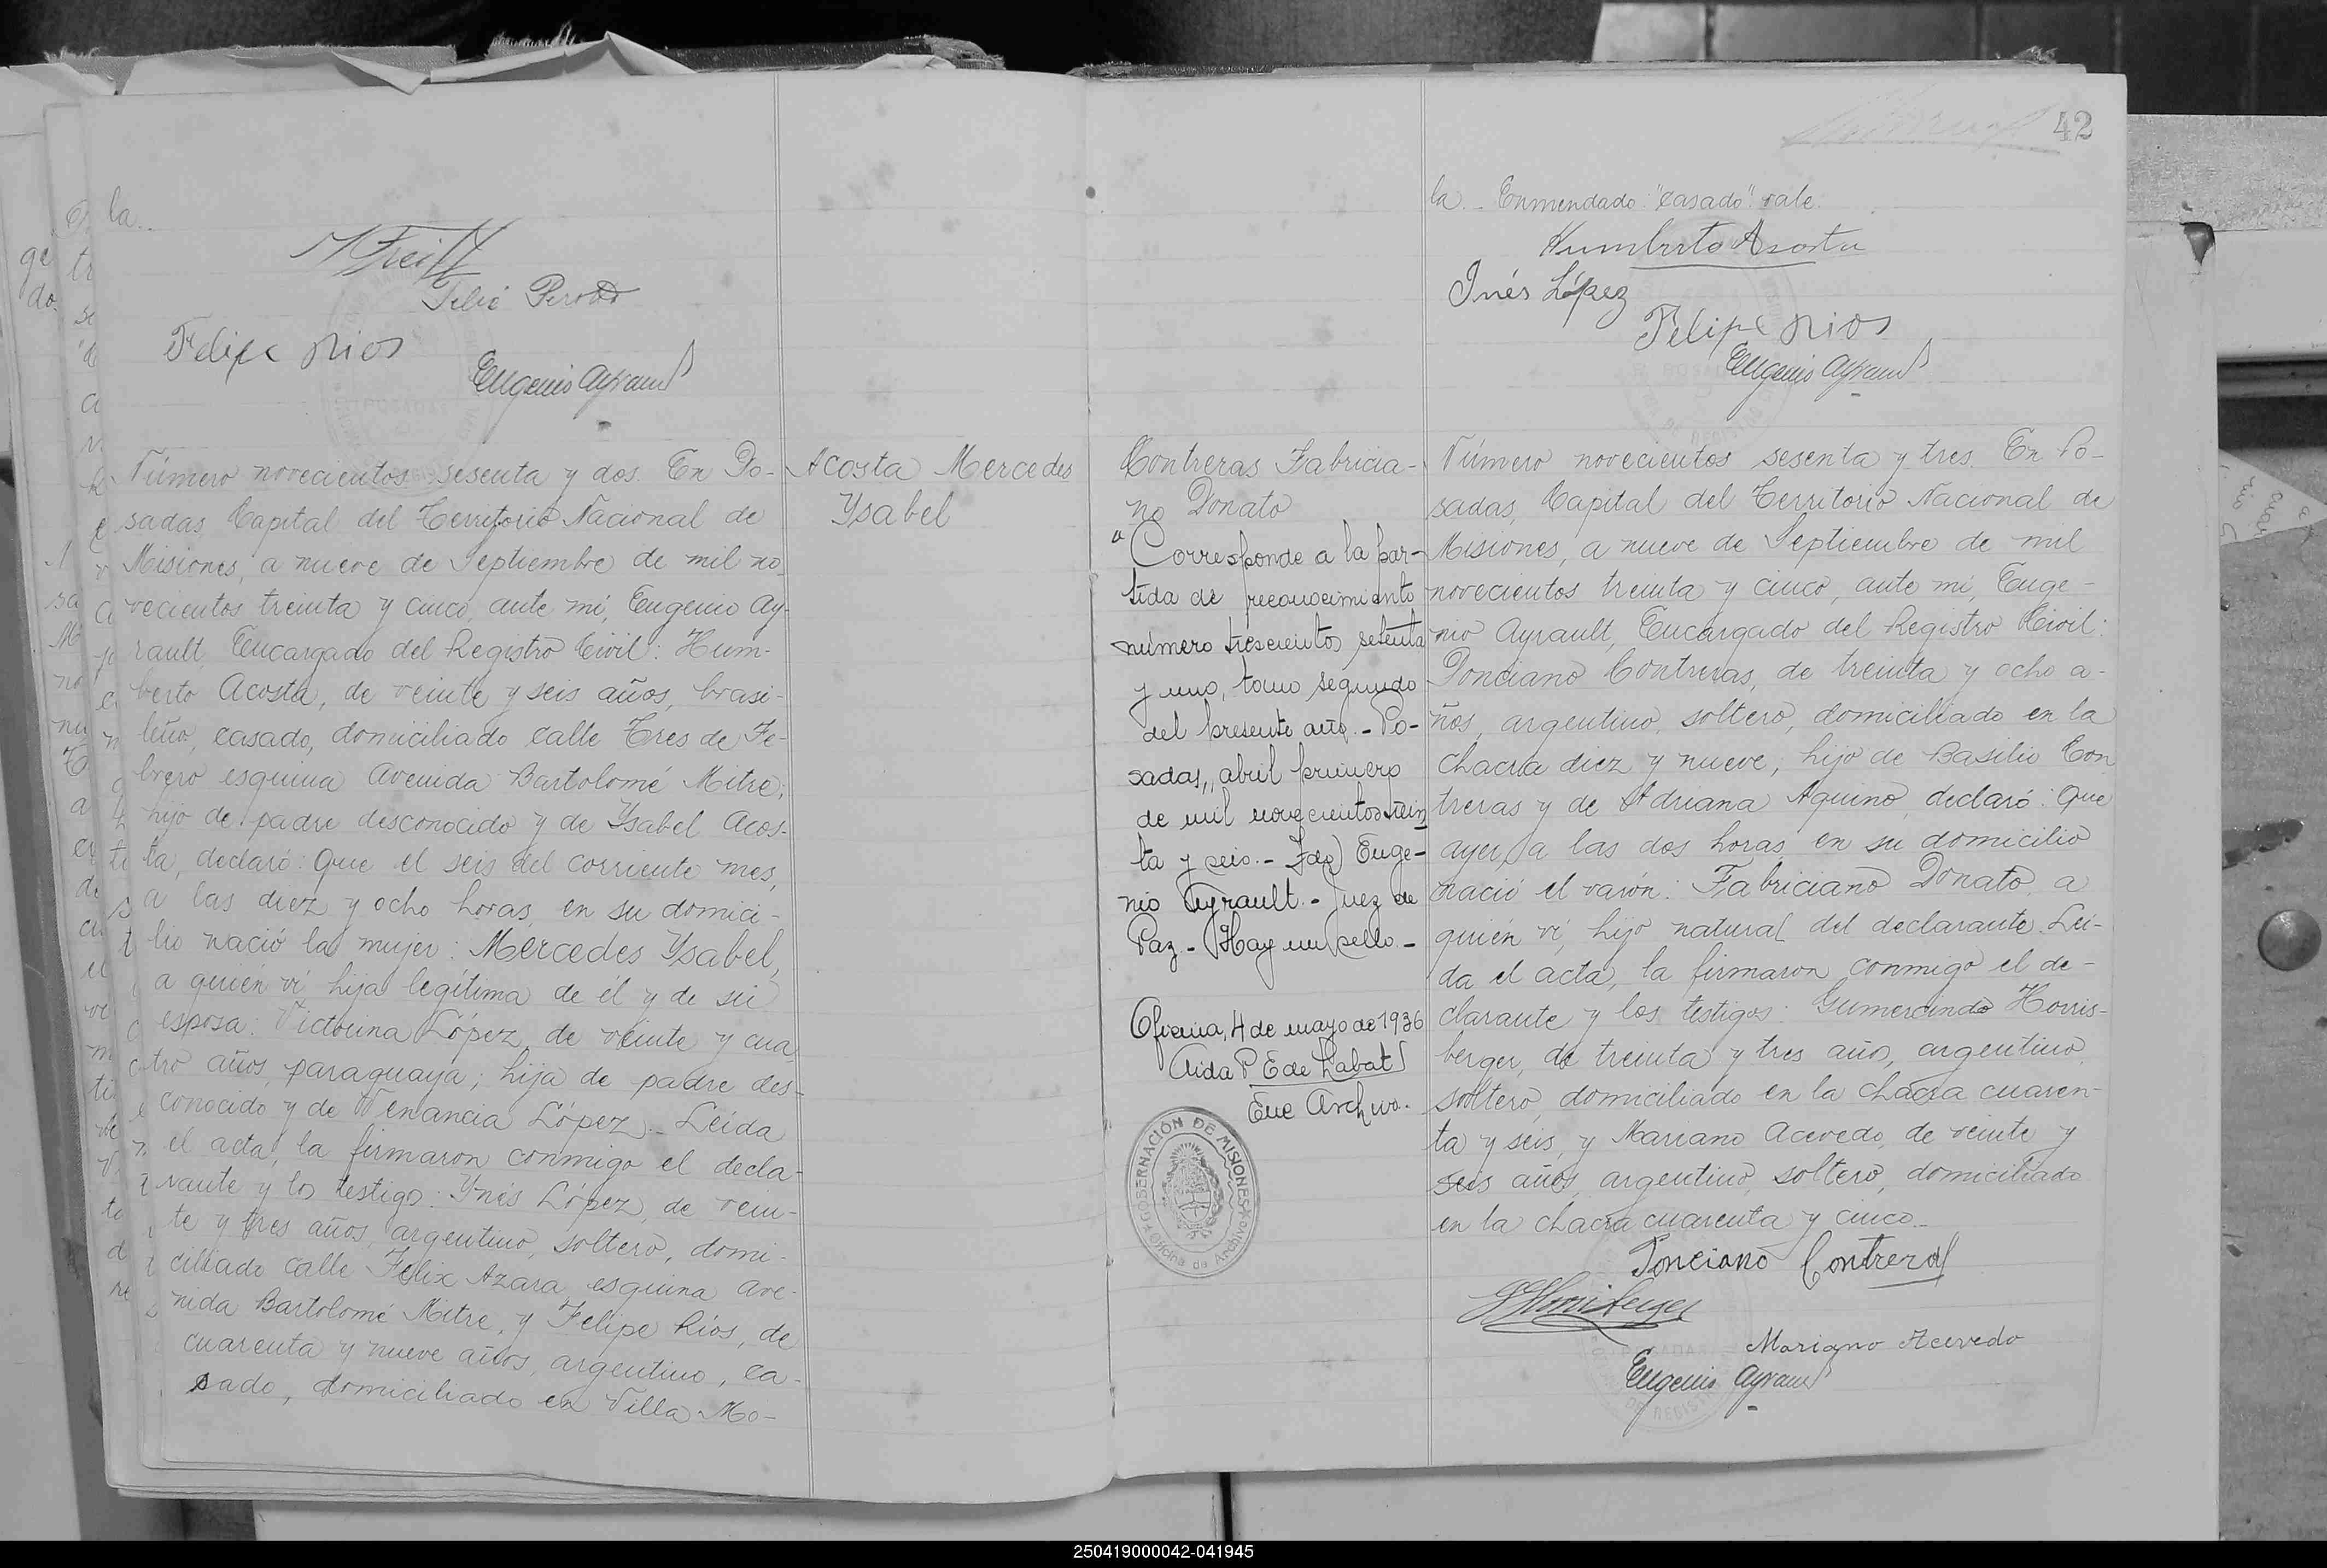 la.
Felipe Rios
Eugenio Ayrault
Acosta Mercedes
Ysabel
Número novecientos sesenta y dos. En Po-
sadas, Capital del Territorio Nacional de
Misiones, a nueve de Septiembre de mil no-
vecientos treinta y cinco, ante mí, Eugenio Ay-
rault, Encargado del Registro Civil: Hum-
berto Acosta, de veinte y seis años, brasi-
leño, casado, domiciliado calle Tres de Fe-
brero esquina Avenida Bartolomé Mitre;
hijo de padre desconocido y de Ysabel Acos-
ta, declaró: Que el seis del corriente mes,
a las diez y ocho horas, en su domici-
lio nació la mujer: Mercedes Ysabel,
a quién ví, hija legítima de él y de su
esposa: Victorina López, de veinte y cua-
tro años, paraguaya; hija de padre des-
conocido y de Venancia López. Leída
el acta, la firmaron conmigo el decla-
rante y los testigos: Ynés López, de vein-
te y tres años, argentino, soltero, domi-
ciliado calle Felix Azara esquina Ave-
nida Bartolomé Mitre, y Felipe Ríos, de
cuarenta y nueve años, argentino, ca-
sado, domiciliado en Villa Mo-
42
la.- Enmendado: "casado": vale.
Humberto Acosta
Inés López
Felipe Rios
Eugenio Ayrault
Contreras Fabricia-
no Donato
"Corresponde a la par-
tida de reconocimiento
número trescientos setenta
y uno, tomo segundo
del presente año.- Po-
sadas, abril primero
de mil novecientos trein
ta y seis.- Fdo) Euge-
nio Ayrault.- Juez de
Paz.- Hay un sello.-
Oficina, 4 de mayo de 1936
Aida P E de Labat
Enc Archivo.
GOBERNACIÓN DE MISIONES
Oficina de Archivo
Número novecientos sesenta y tres. En Po-
sadas, Capital del Territorio Nacional de
Misiones, a nueve de Septiembre de mil
novecientos treinta y cinco, ante mí, Euge-
nio Ayrault, Encargado del Registro Civil:
Ponciano Contreras, de treinta y ocho a-
ños, argentino, soltero, domiciliado en la
chacra diez y nueve, hijo de Basilio Con
treras y de Adriana Aquino, declaró: Que
ayer, a las dos horas en su domicilio
nació el varón: Fabriciano Donato, a
quién ví, hijo natural del declarante. Leí-
da el acta, la firmaron conmigo el de-
clarante y los testigos: Gumercindo Horris-
berger, de treinta y tres años, argentino,
soltero, domiciliado en la chacra cuaren-
ta y seis, y Mariano Acevedo, de veinte y
seis años, argentino, soltero, domiciliado
en la chacra cuarenta y cinco.-
Ponciano Contreras
Mariano Acevedo
Eugenio Ayrault
250419000042-041945